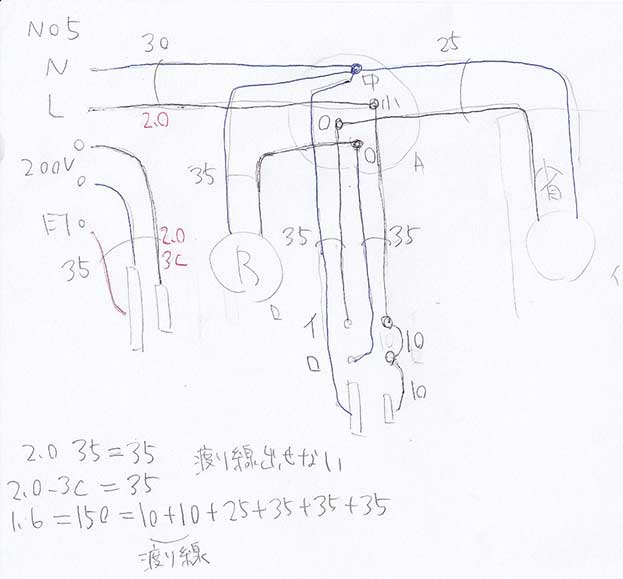 NO5
30
25
N
中
L
小
2.0
O
200V
O
A
35
省
35
2.0
35
35
E1
3C
35
R
ロ
イ
イ
10
ロ
10
2.0 35=35 渡り線出せない
2.0-3C=35
1.6=150=10+10+25+35+35+35
渡り線